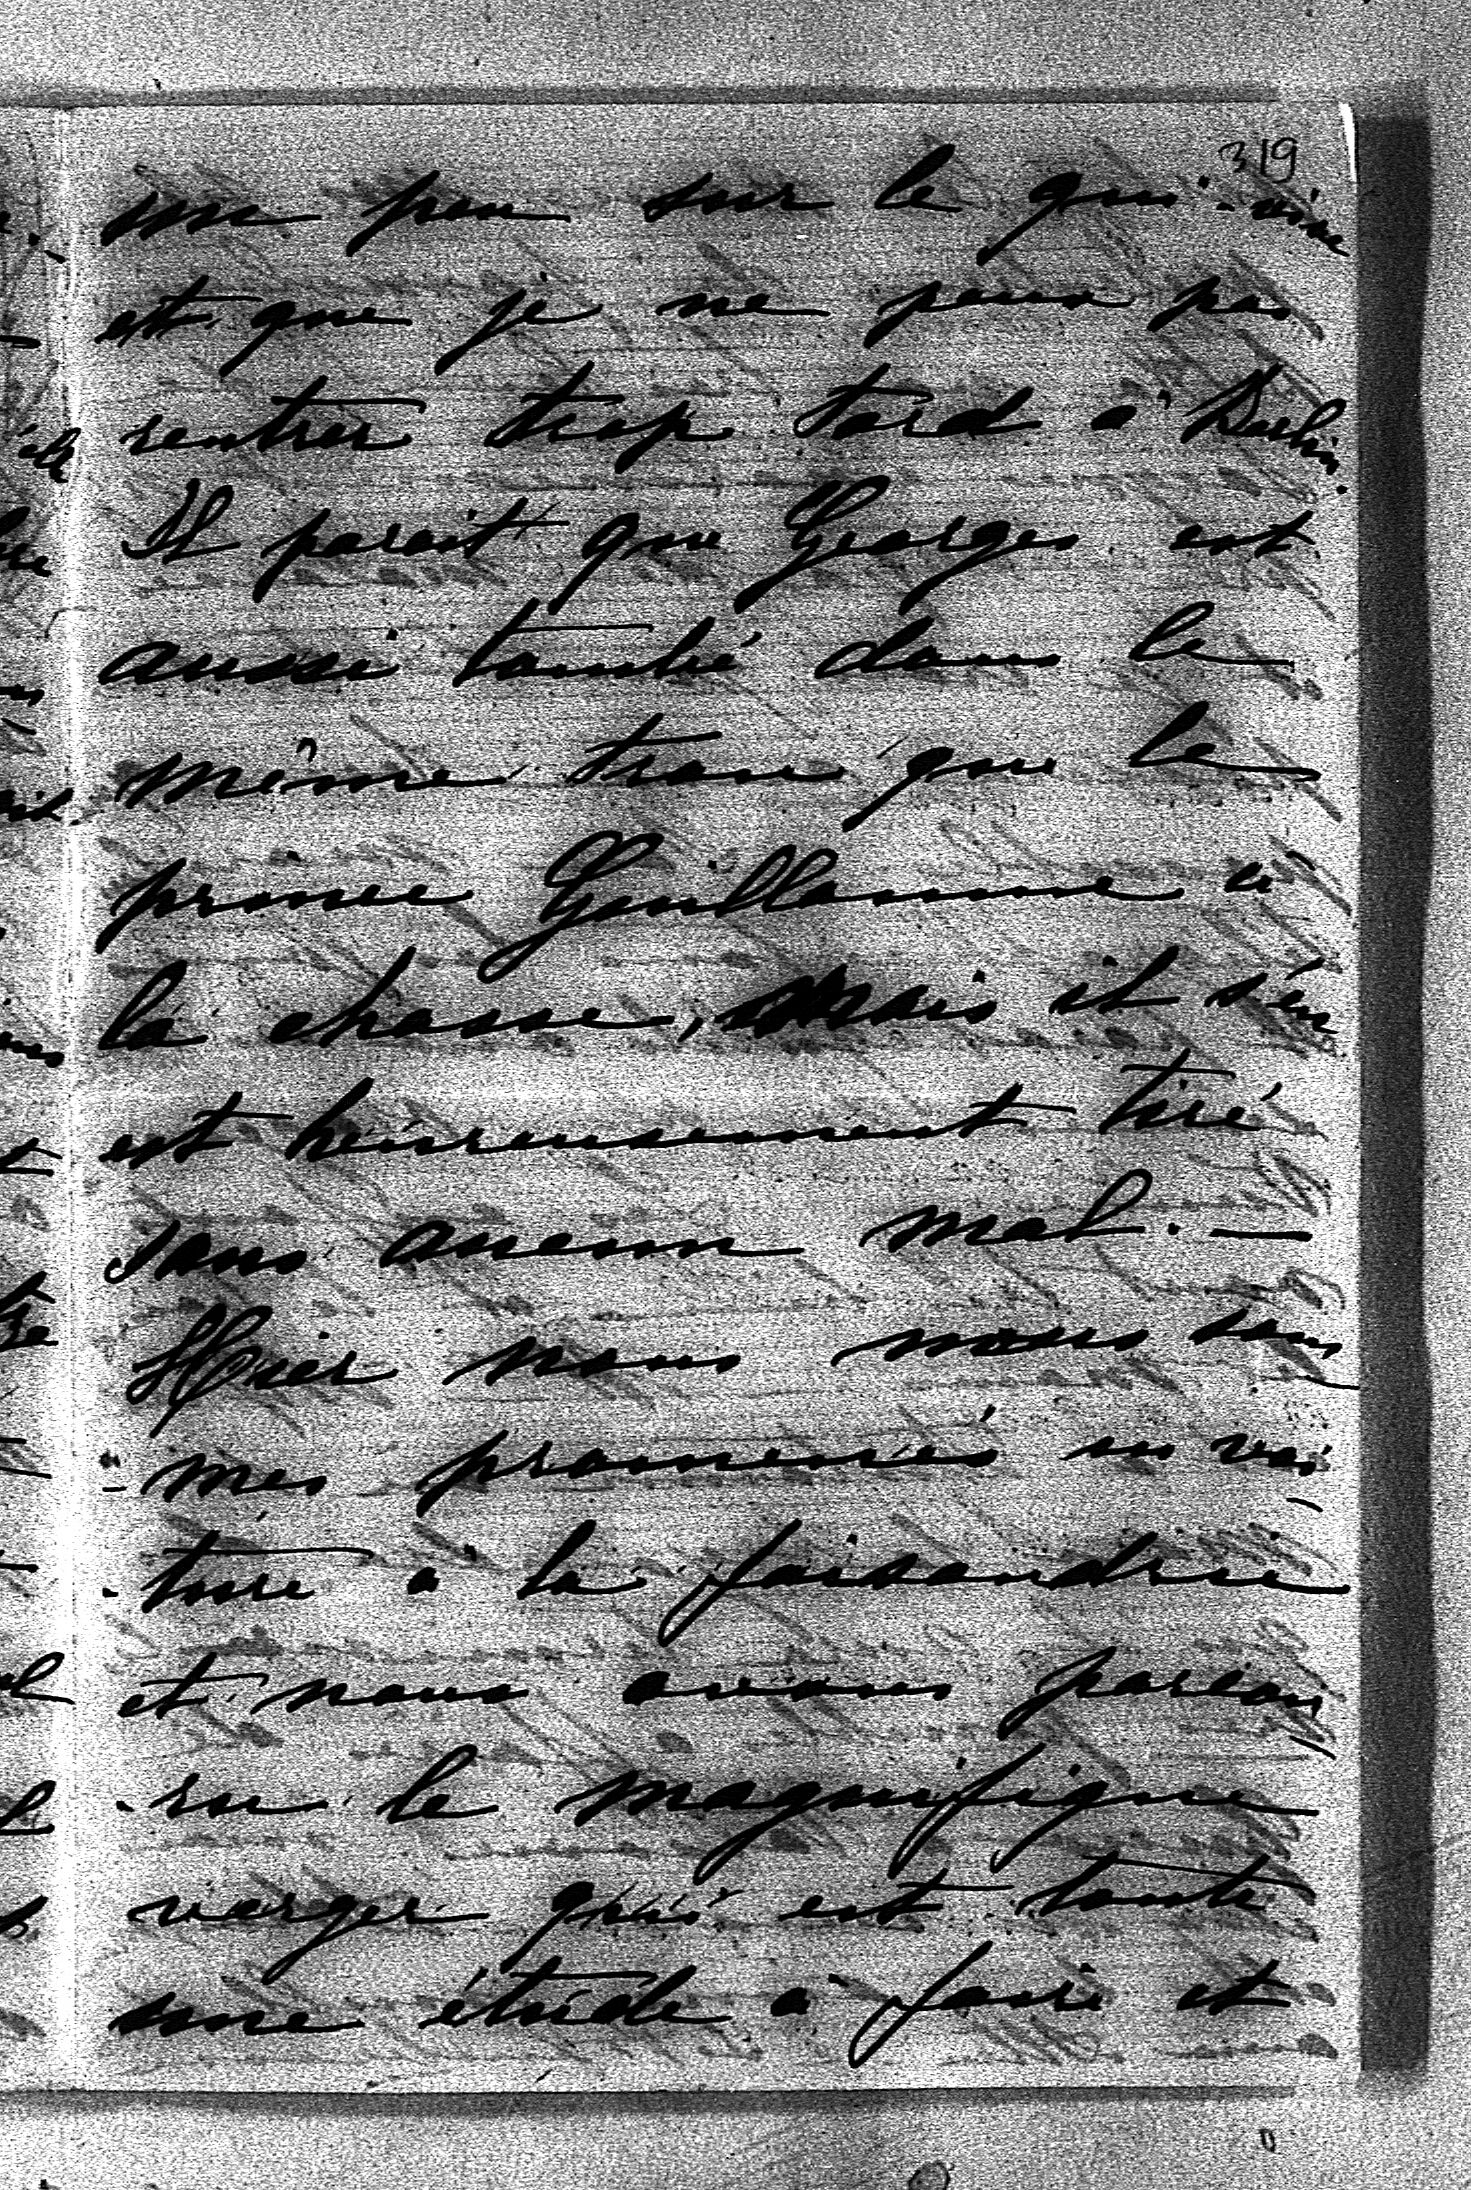 319
un peu sur le qui-vive
est que je ne peux pas
rentrer trop tard à Berlin.
Il parait que Georges est
aussi tombé dans le
même trou que le
prince Guillaume à
la chasse, mais il s'en
est heureusement tiré
sans aucun mal. —
Hier nous nous som-
-mes promenés en voi-
-ture à la faisandrie
et nous avons parcou-
-ru le magnifique
verger qui est toute
une étude à faire et